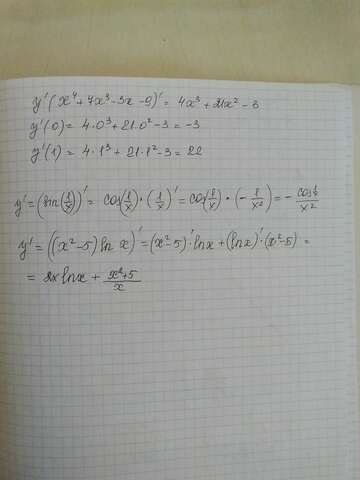 y'(x⁴+7x³-3x-9)' = 4x³+21x²-3
y'(0) = 4·0³+21·0²-3 = -3
y'(1) = 4·1³+21·1²-3 = 22
y' = (sin(1/x))' = cos(1/x)·(1/x)' = cos(1/x)·(-1/x²) = - cos 1/x / x²
y' = ((x²-5) ln x)' = (x²-5)'·ln x + (ln x)'·(x²-5) =
= 2x ln x + x²+5 / x